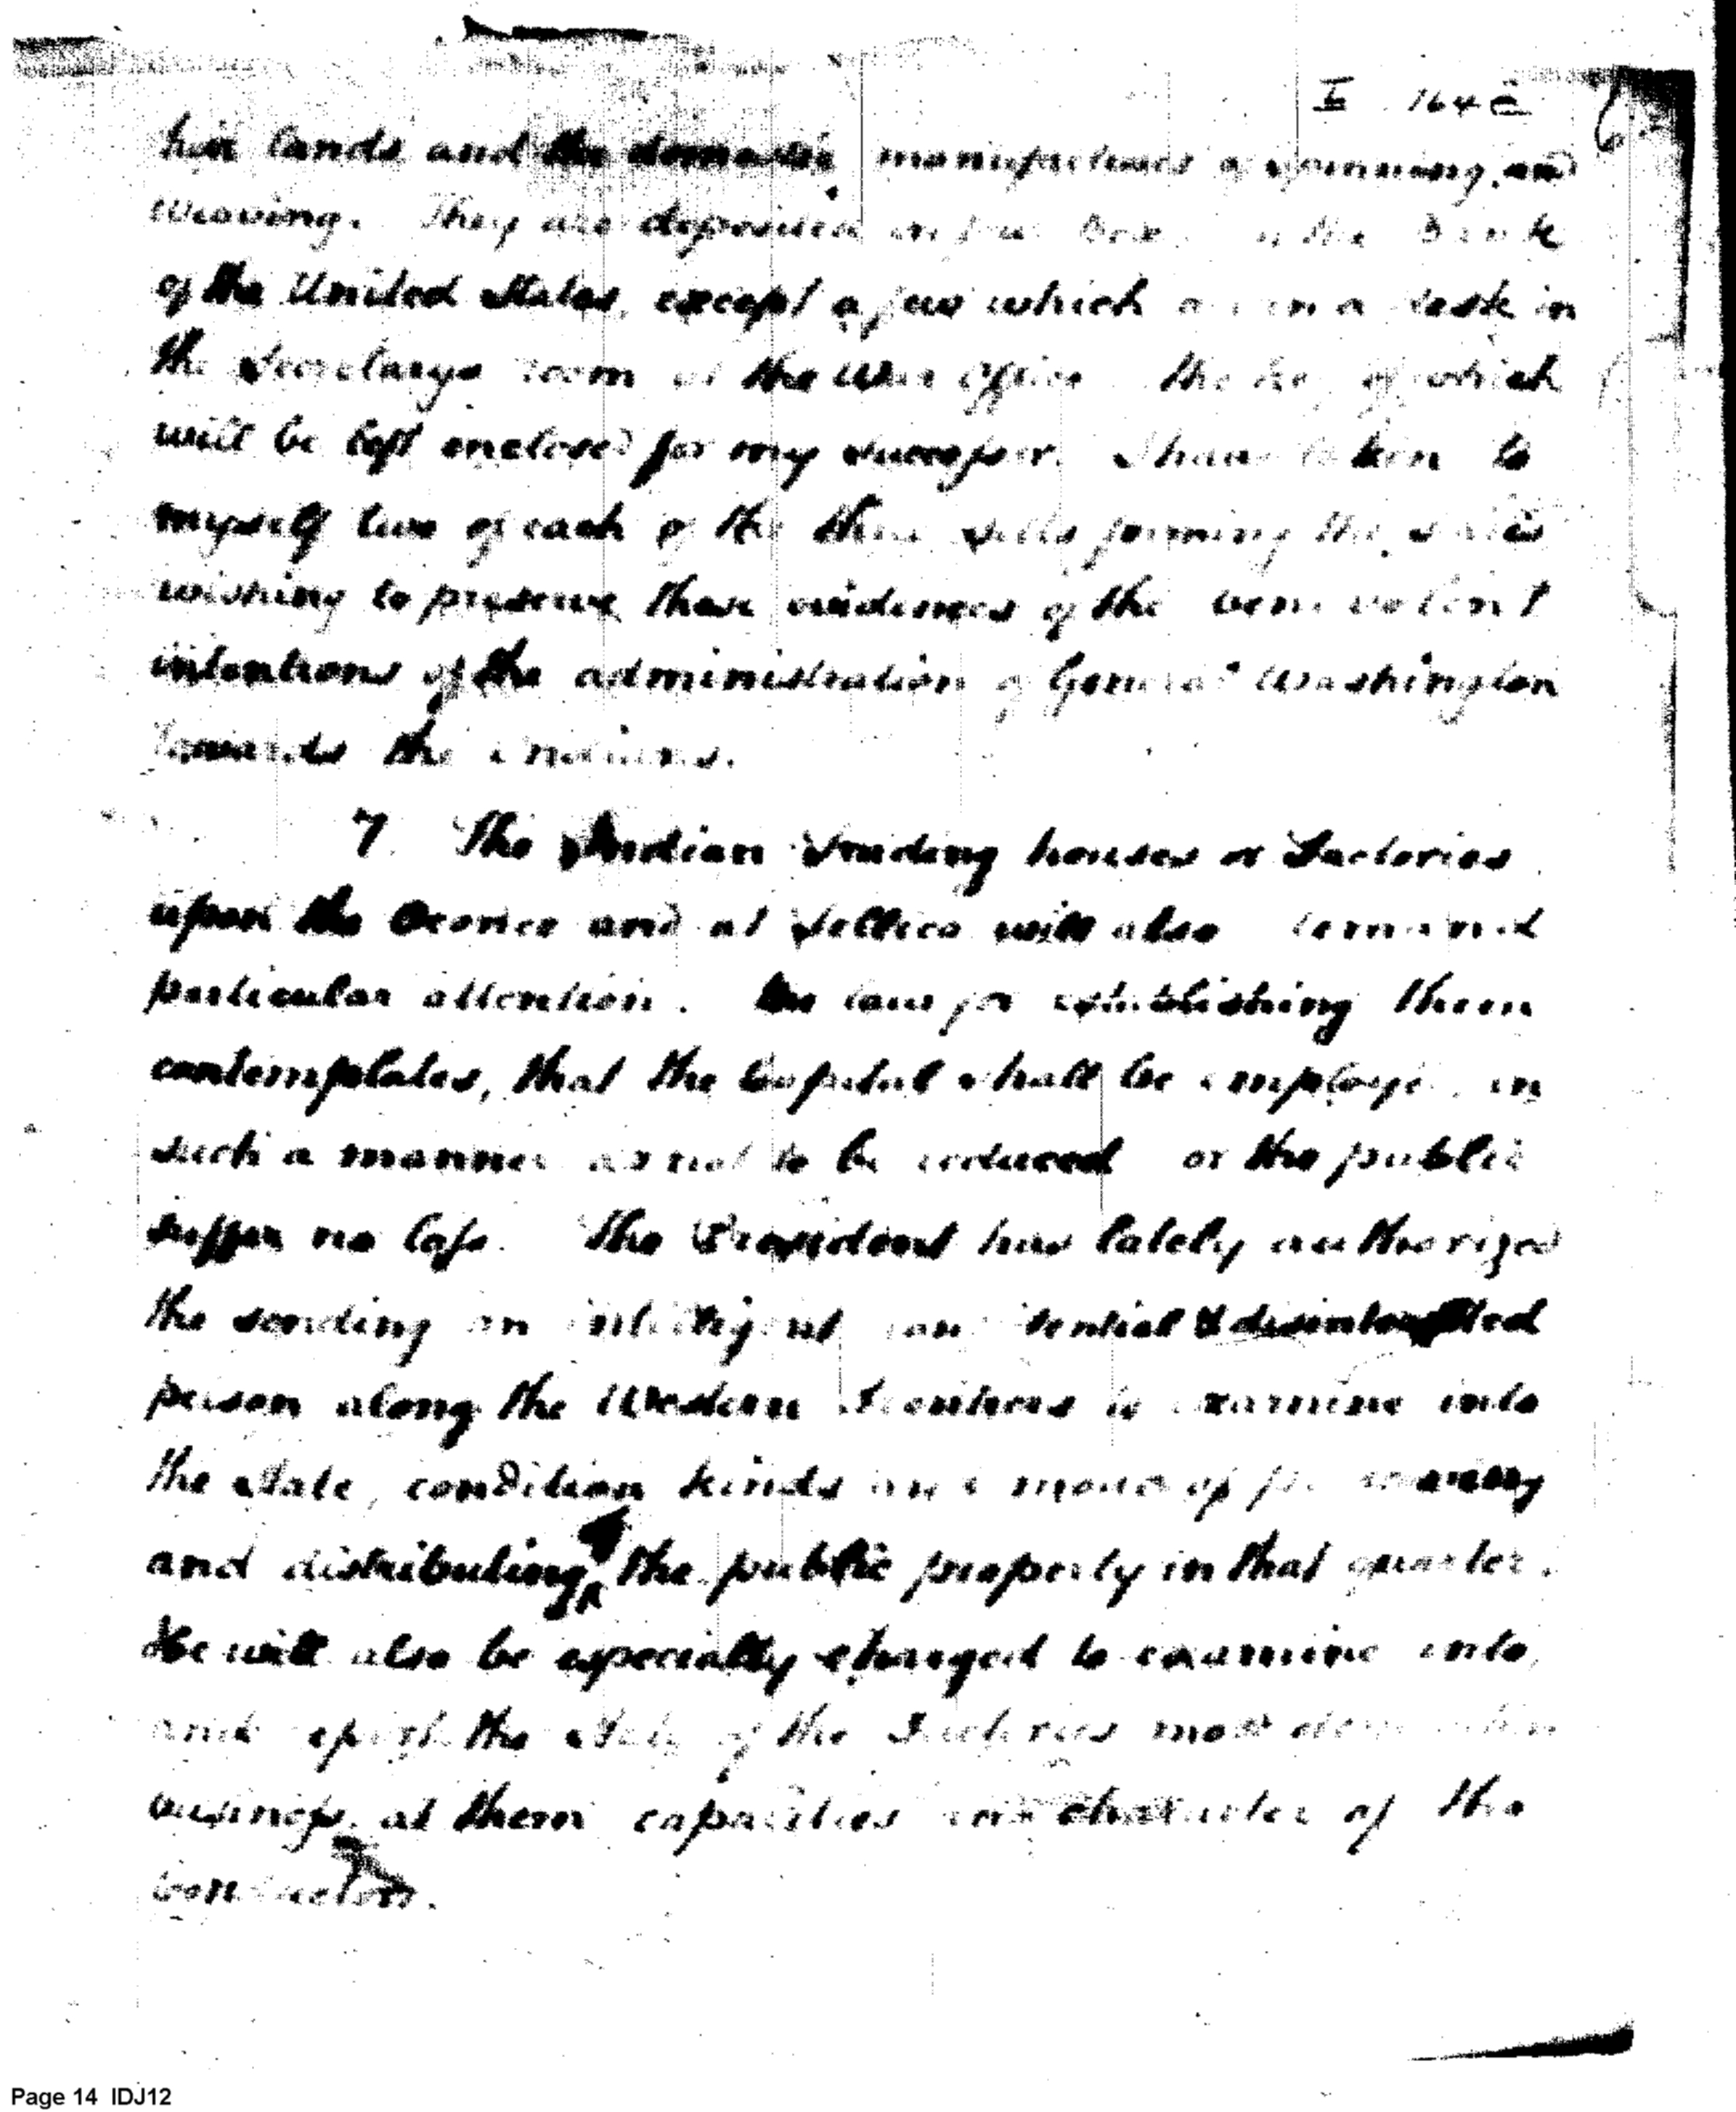 I 164 c
6
his lands and the domestic manufactures of spinning, and
weaving. They are deposited in the Bank
of the United States, except a few which are in a desk in
the Secretarys room at the War Office the key of which
will be left enclosed for my successor. I have taken to
myself two of each of the three setts forming the series
wishing to preserve these evidences of the benevolent
intentions of the administration of General Washington
towards the Indians.
7. The Indian Trading houses or Factories
upon the Oconee and at Tellico will also demand
particular attention. The law for establishing them
contemplates, that the Capital shall be employed in
such a manner as not to be reduced or the public
suffer no loss. The President has lately authorized
the sending an intelligent confidential & disinterested
person along the Western Frontiers to examine into
the state, condition kinds and mode of preserving
and distributing the public property in that quarter.
He will also be especially charged to examine into,
and report the State of the Factories mode of
business at them capacities and character of the
Conductors.
Page 14 IDJ12